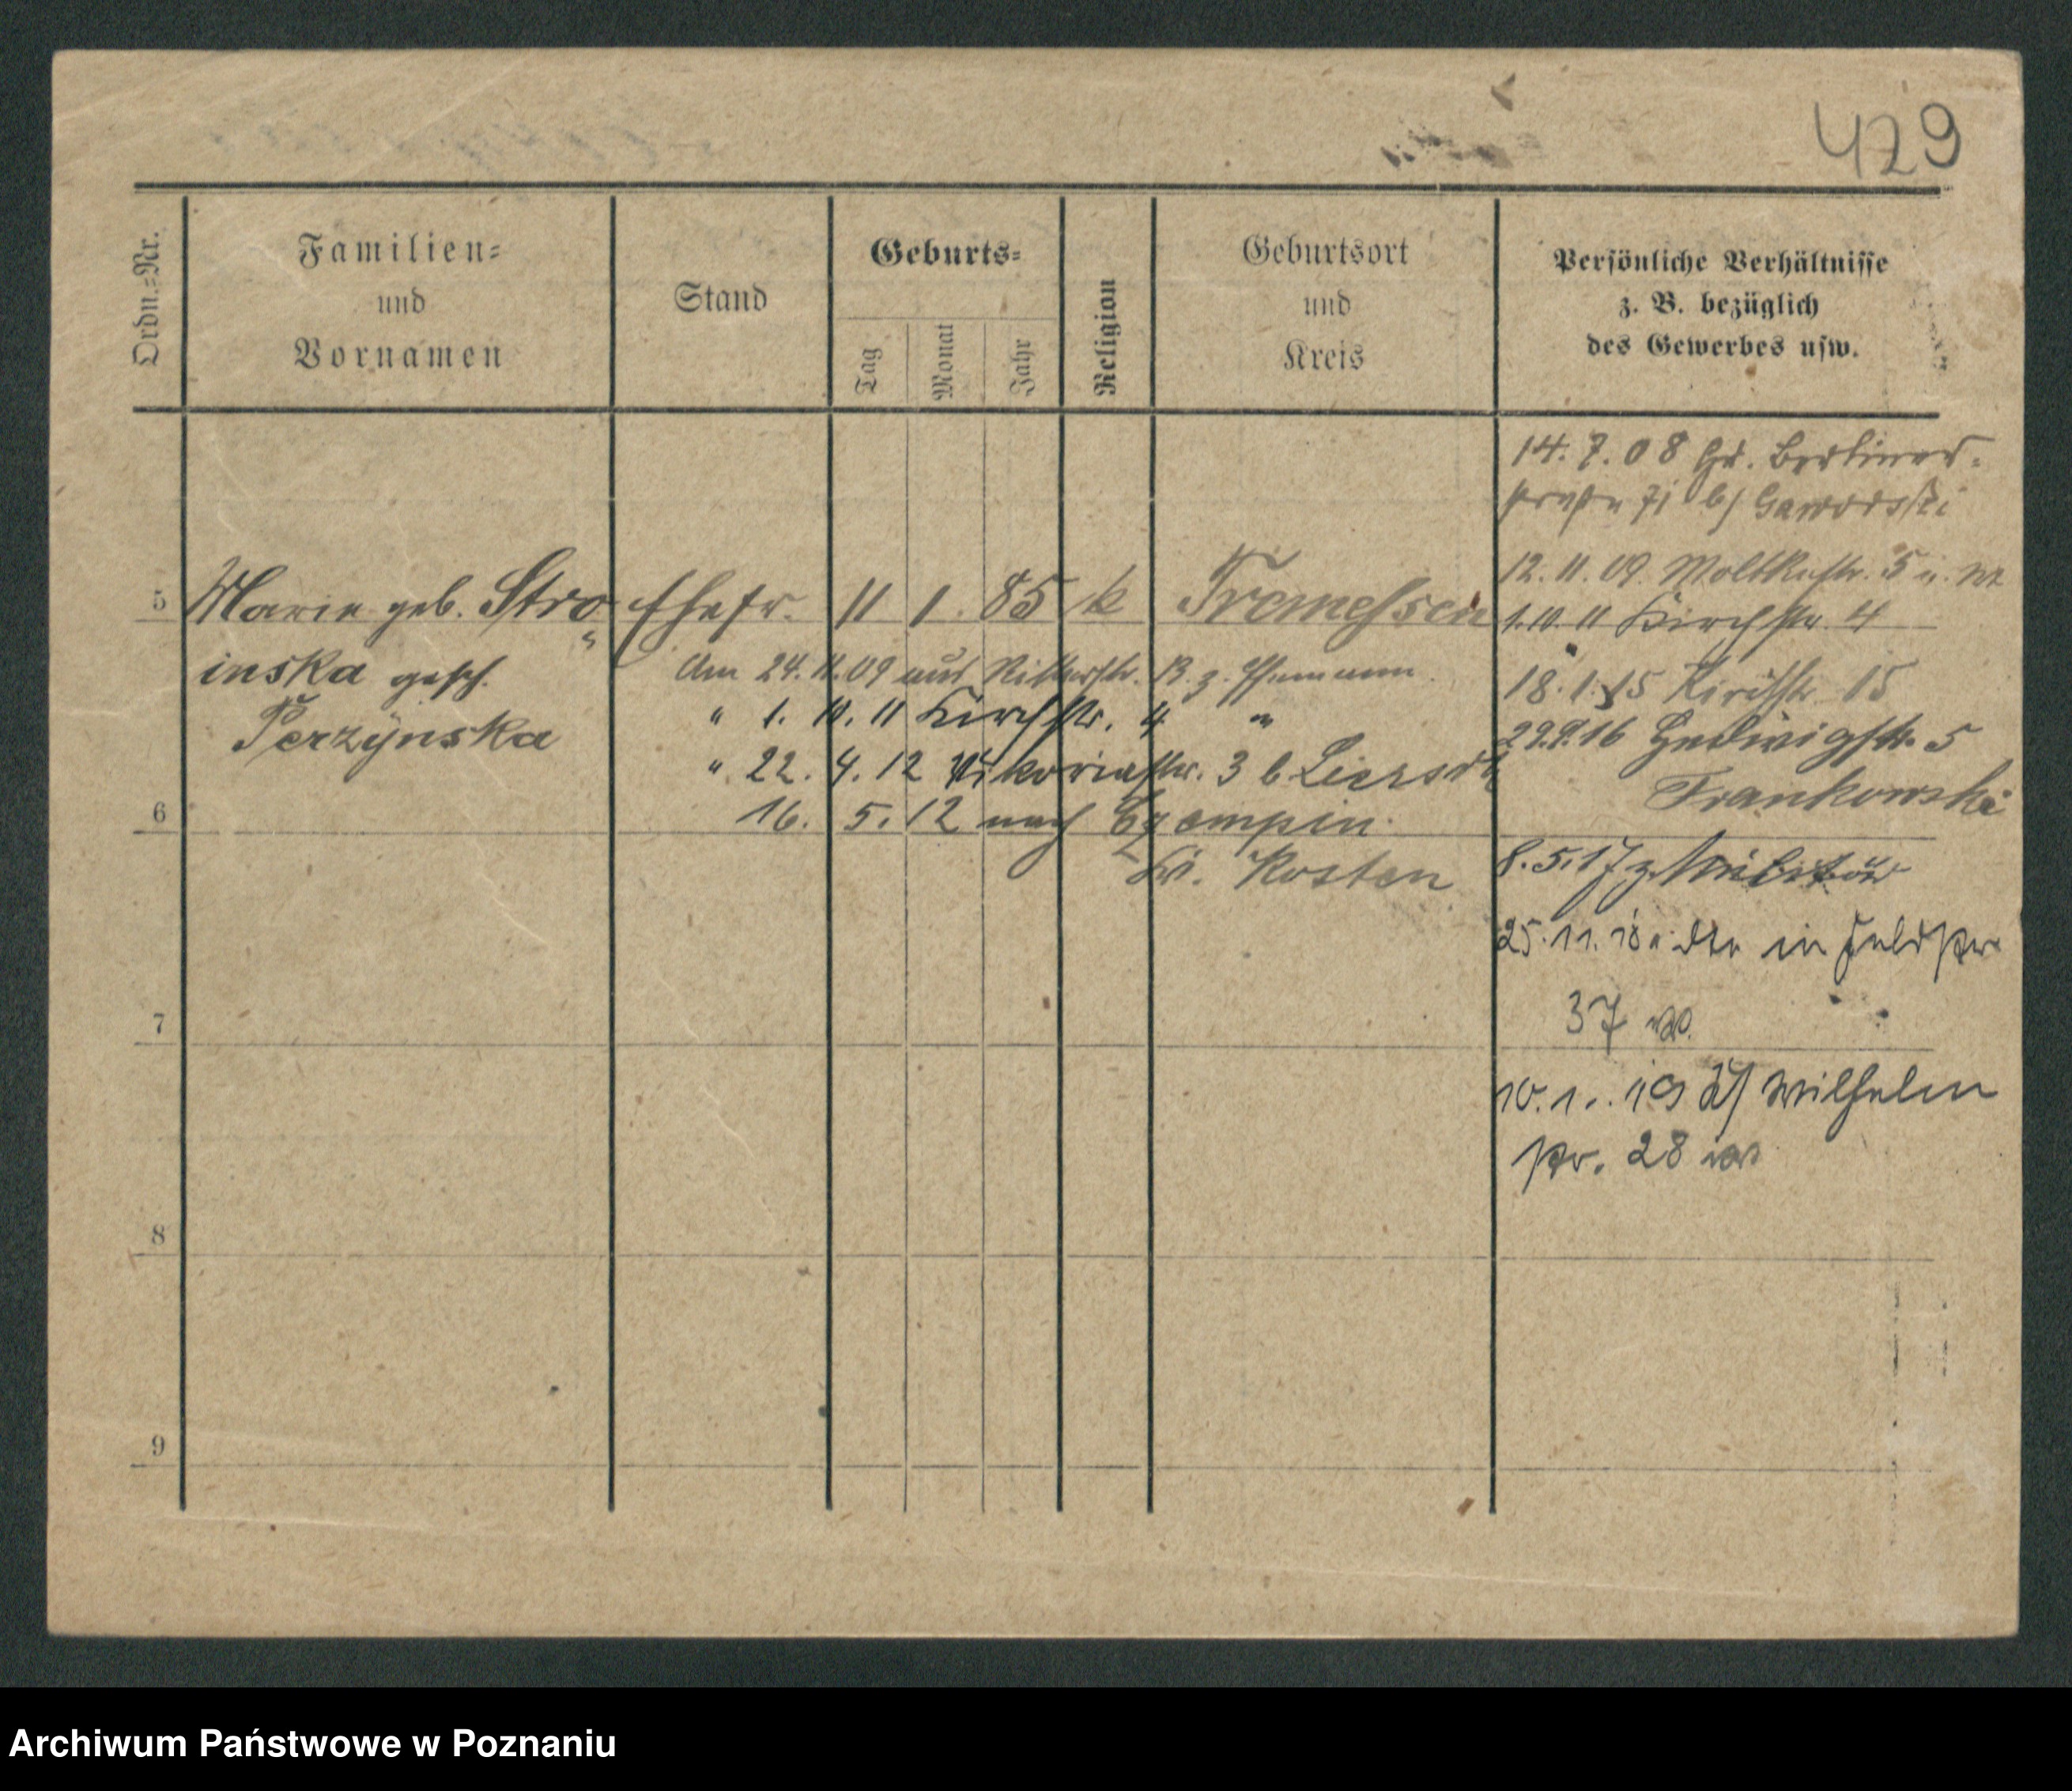 429
Ordn.-Nr.
Familien-
und
Vornamen
Stand
Geburts-
Tag
Monat
Jahr
Religion
Geburtsort
und
Kreis
Persönliche Verhältnisse
z. B. bezüglich
des Gewerbes usw.
14. 7. 08 Gr. Berliner-
straße 71 b/ Gaworski
12. 11. 09. Moltkestr. 5
5 Marie geb. Stro- Ehefr. 11 1. 85 k Tremessen
1. 10. 11 Kirchstr. 4
inska gesch.
Perzynska
Am 24. 11. 09 aus Ritterstr. 13. z. Ehemann.
" 1. 10. 11 Kirchstr. 4 "
" 22. 4. 12 Viktoriastr. 3 b
16. 5. 12 nach Czempin
Kr. Kosten
18. 1. 15 Kirchstr. 15
29.9.16 Hedwigstr. 5
Frankowski
6
8. 5. 17 z. Militär
25. 11. 18 in Feldstr
37
7
10. 1. 19 Wilhelm
str. 28
8
9
Archiwum Państwowe w Poznaniu